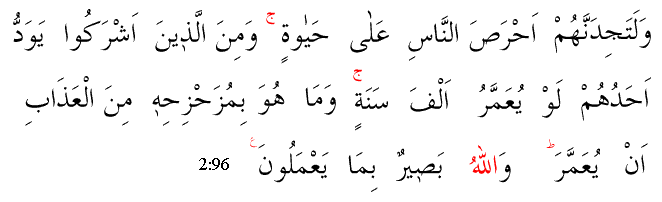 وَلَتَجِدَنَّهُمْ اَحْرَصَ النَّاسِ عَلٰى حَيٰوةٍ ۚ وَمِنَ الَّذ۪ينَ اَشْرَكُوا يَوَدُّ
اَحَدُهُمْ لَوْ يُعَمَّرُ اَلْفَ سَنَةٍ ۚ وَمَا هُوَ بِمُزَحْزِحِه۪ مِنَ الْعَذَابِ
اَنْ يُعَمَّرَ ۜ وَاللّٰهُ بَص۪يرٌ بِمَا يَعْمَلُونَ ۟ 2:96